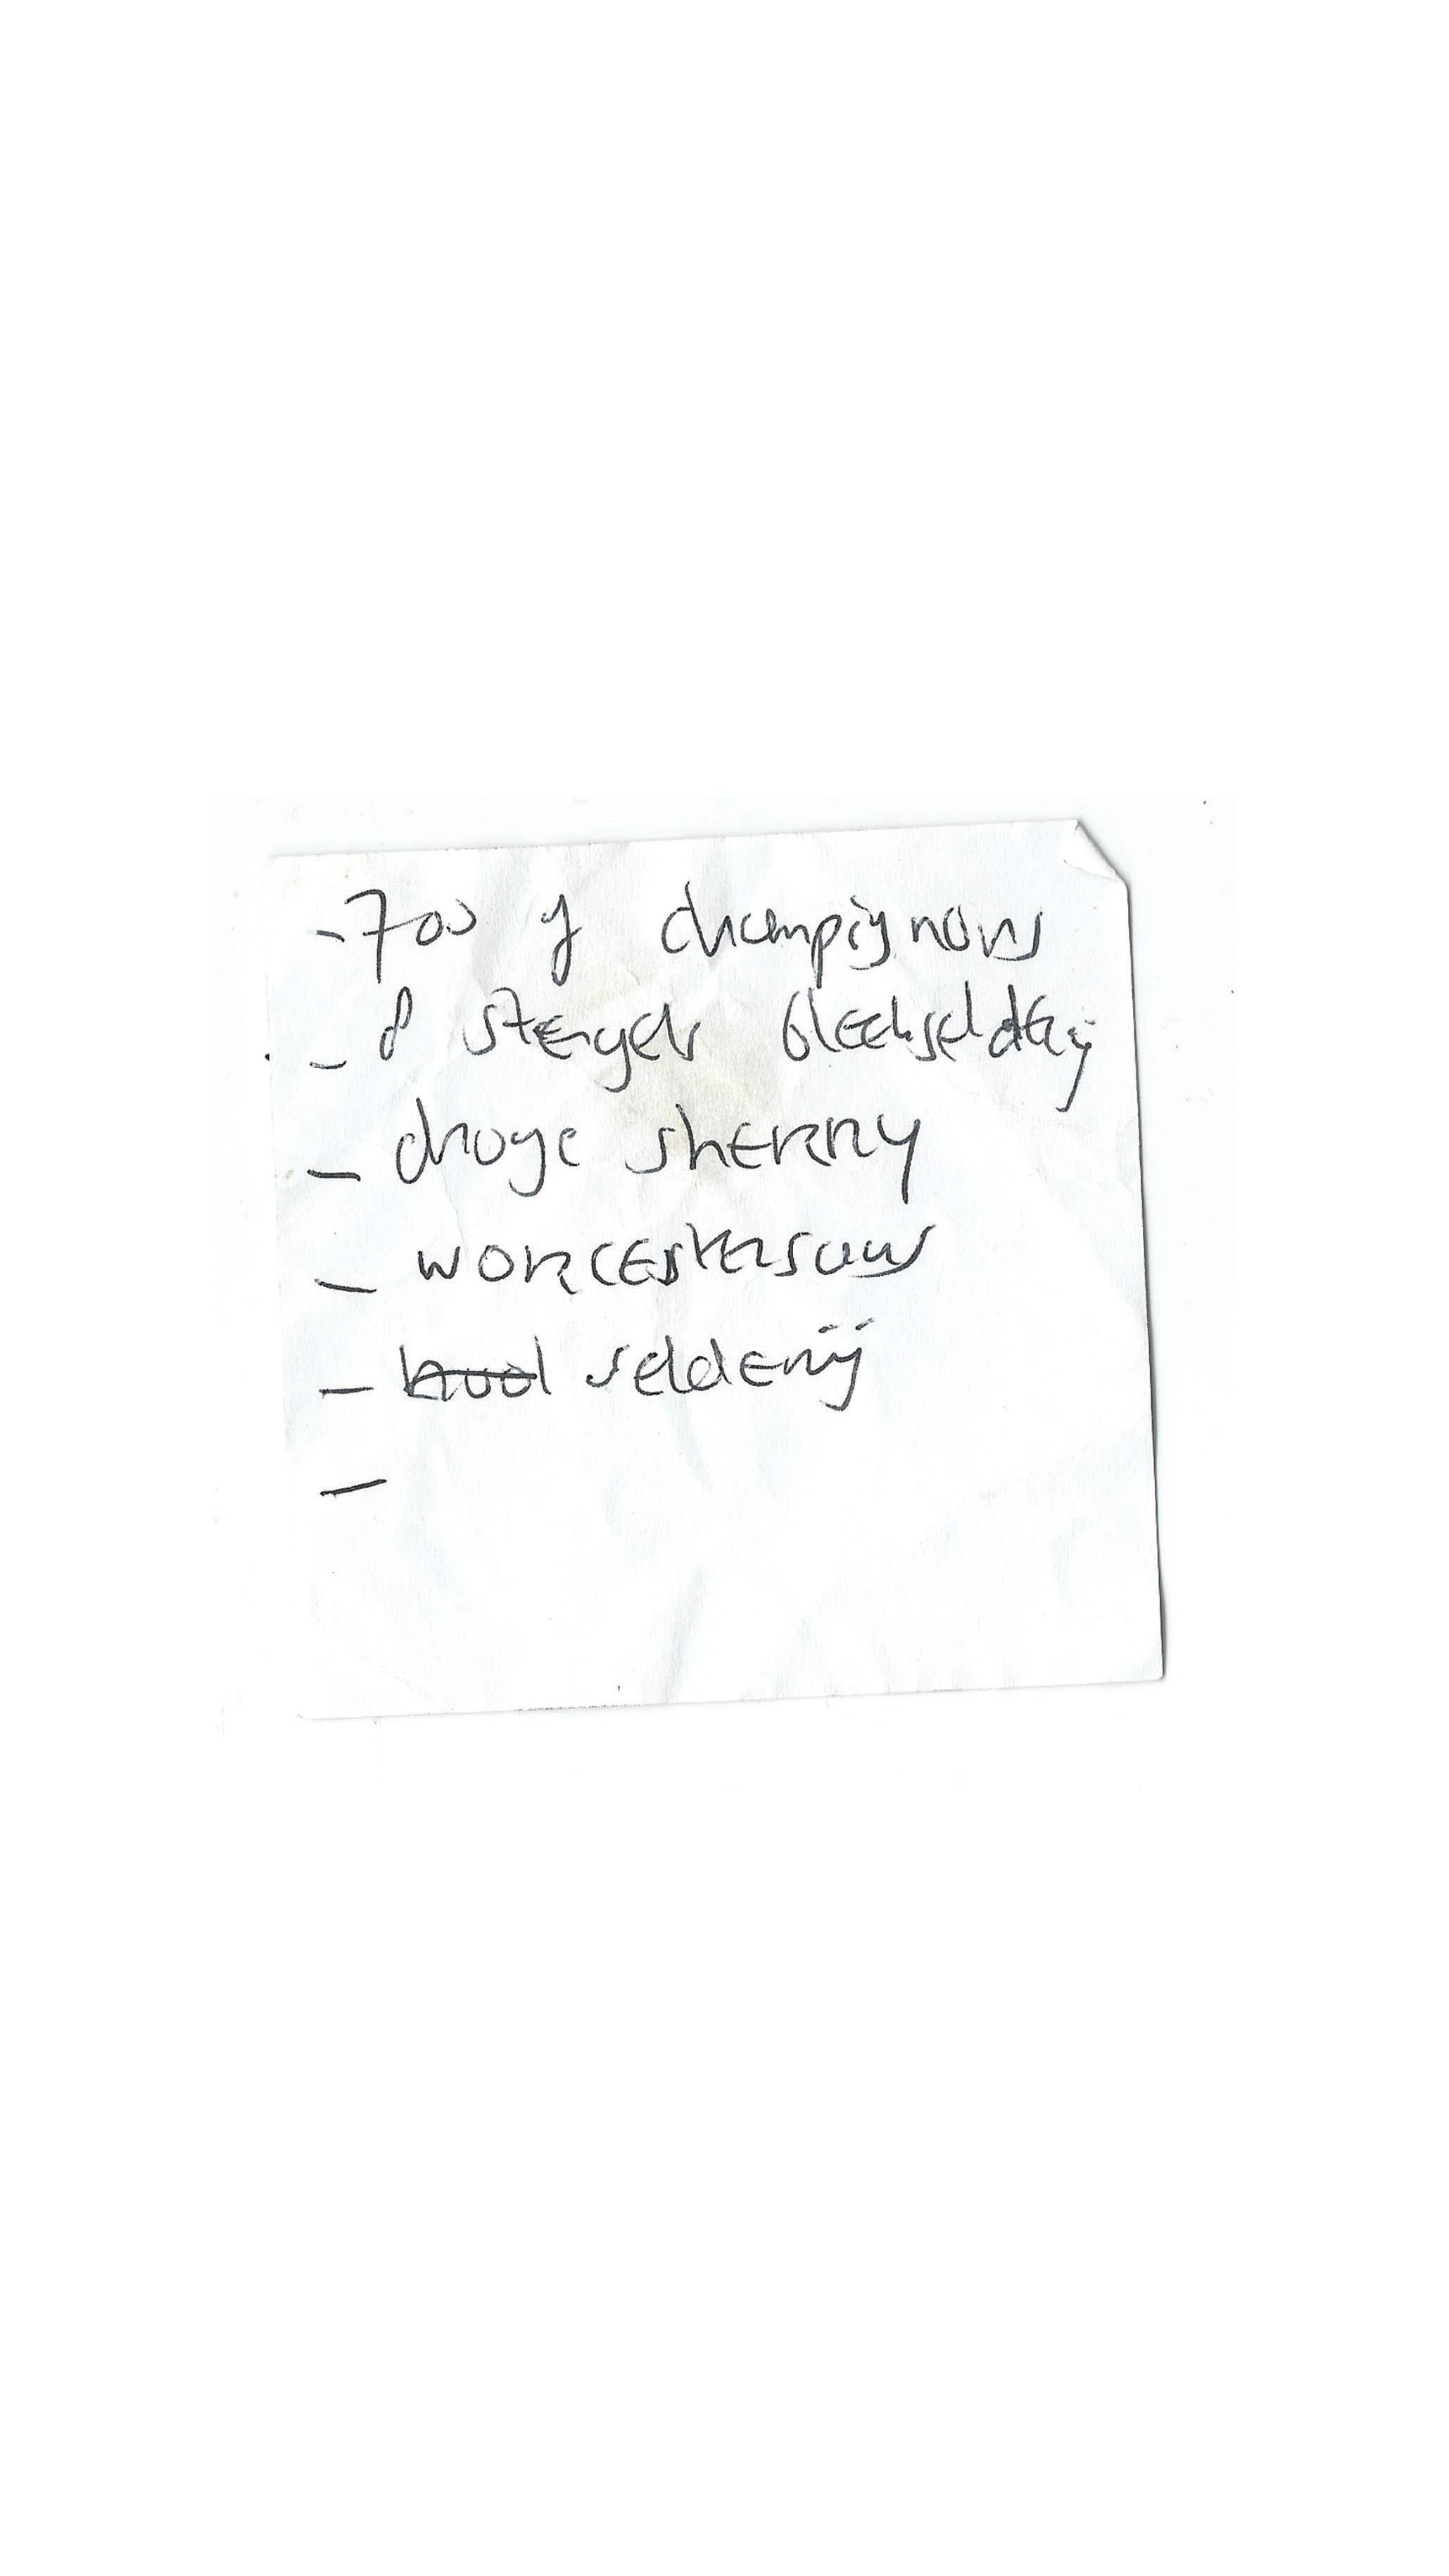 - 700 g champignons
- 8 stengels bleekselderij
- droge sherry
- worcestersaus
- selderij
-